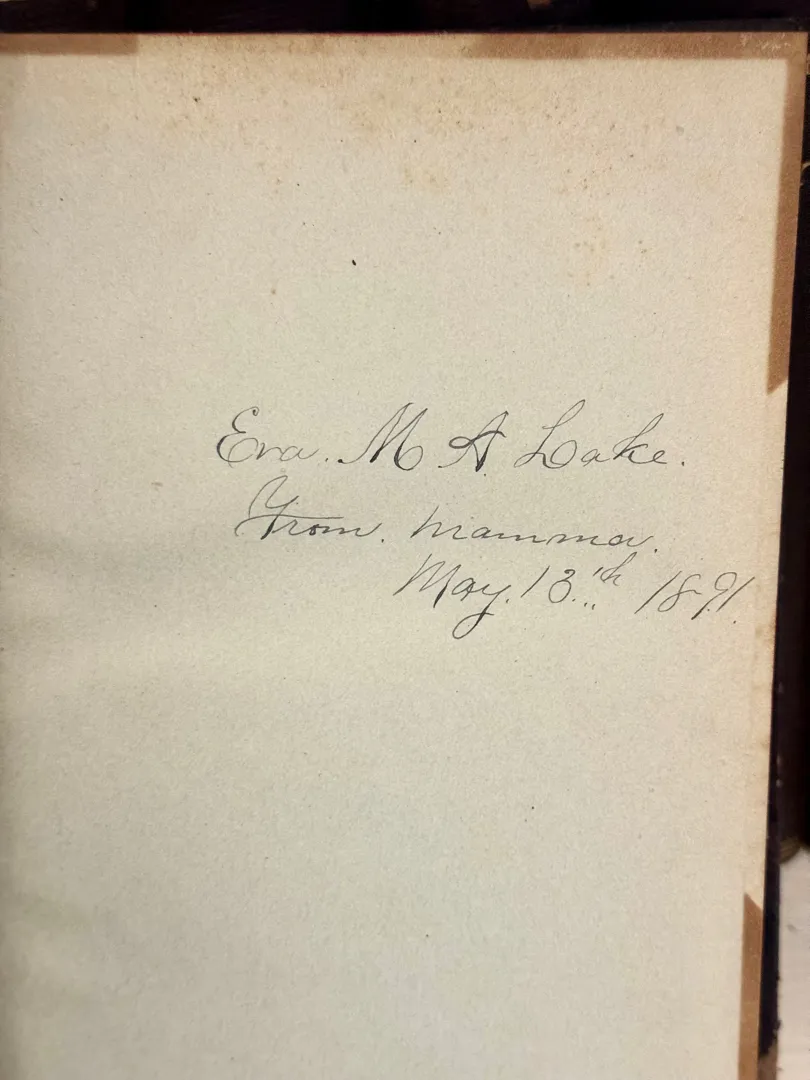 Eva. M A. Lake.
From. Mamma.
May. 13.th 1891.